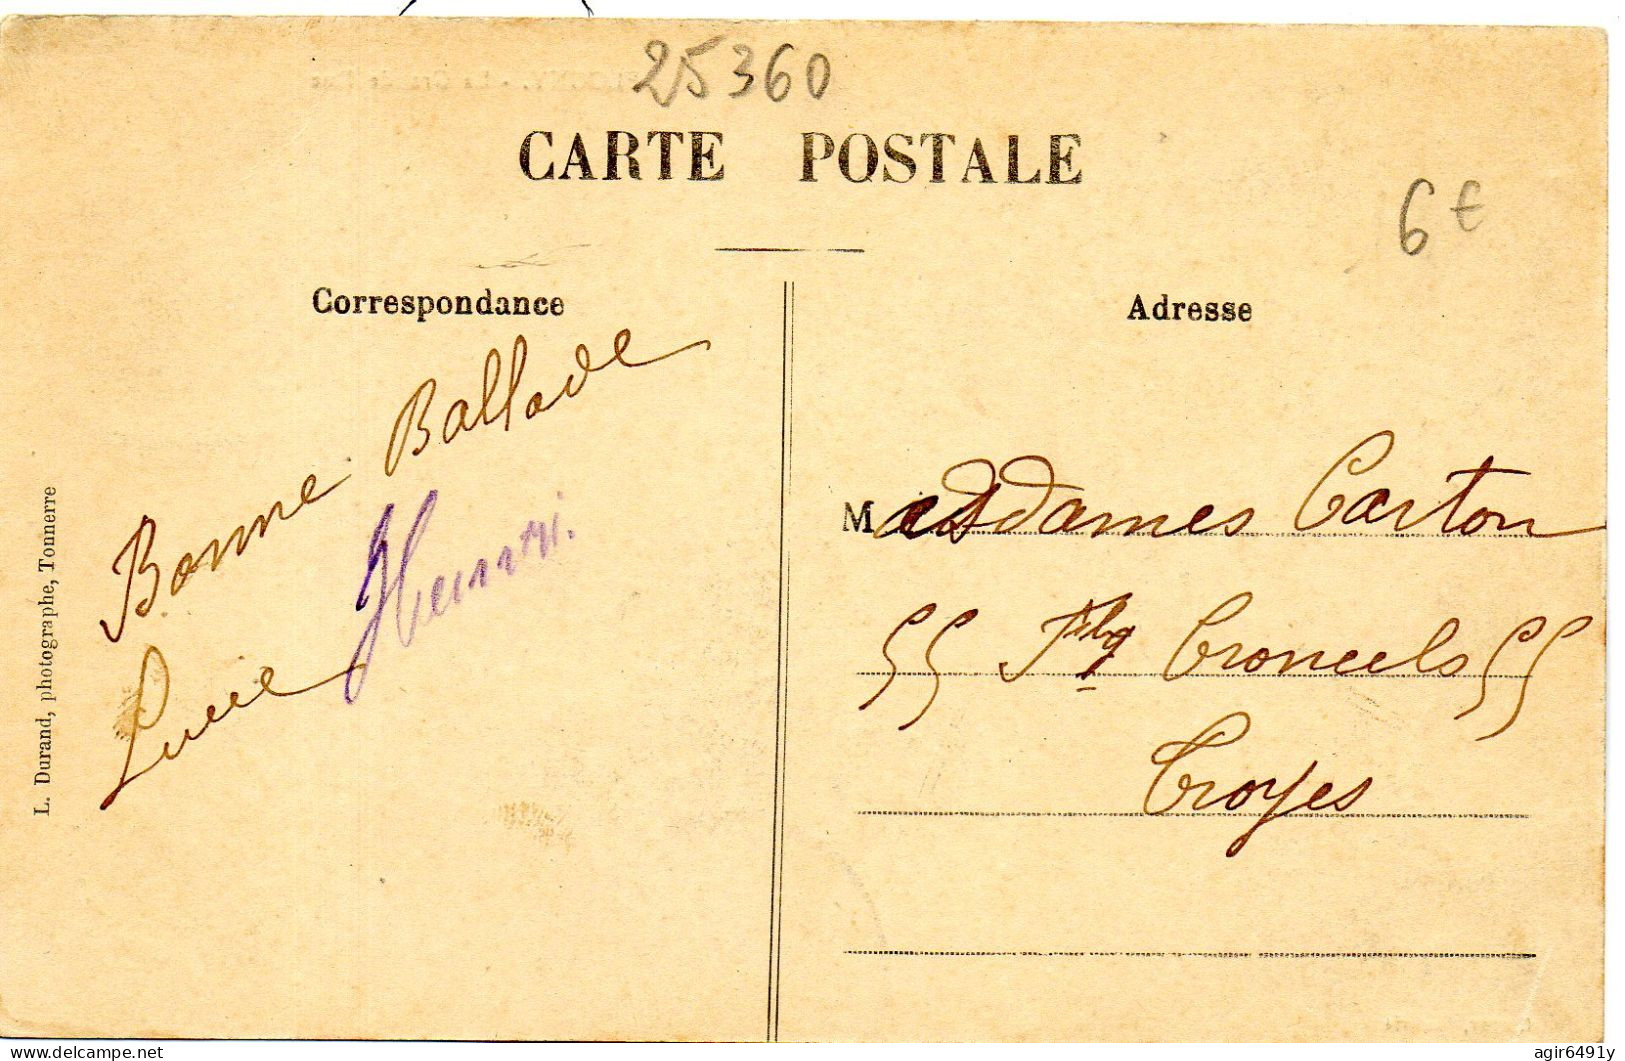 25360
CARTE POSTALE
6€
Correspondance
Bonne Ballade
Lucie Henri.
L. Durand, photographe, Tonnerre
Adresse
Mesdames Carton
55 Fbg Croncels 55
Troyes
delcampe.net
agir6491y